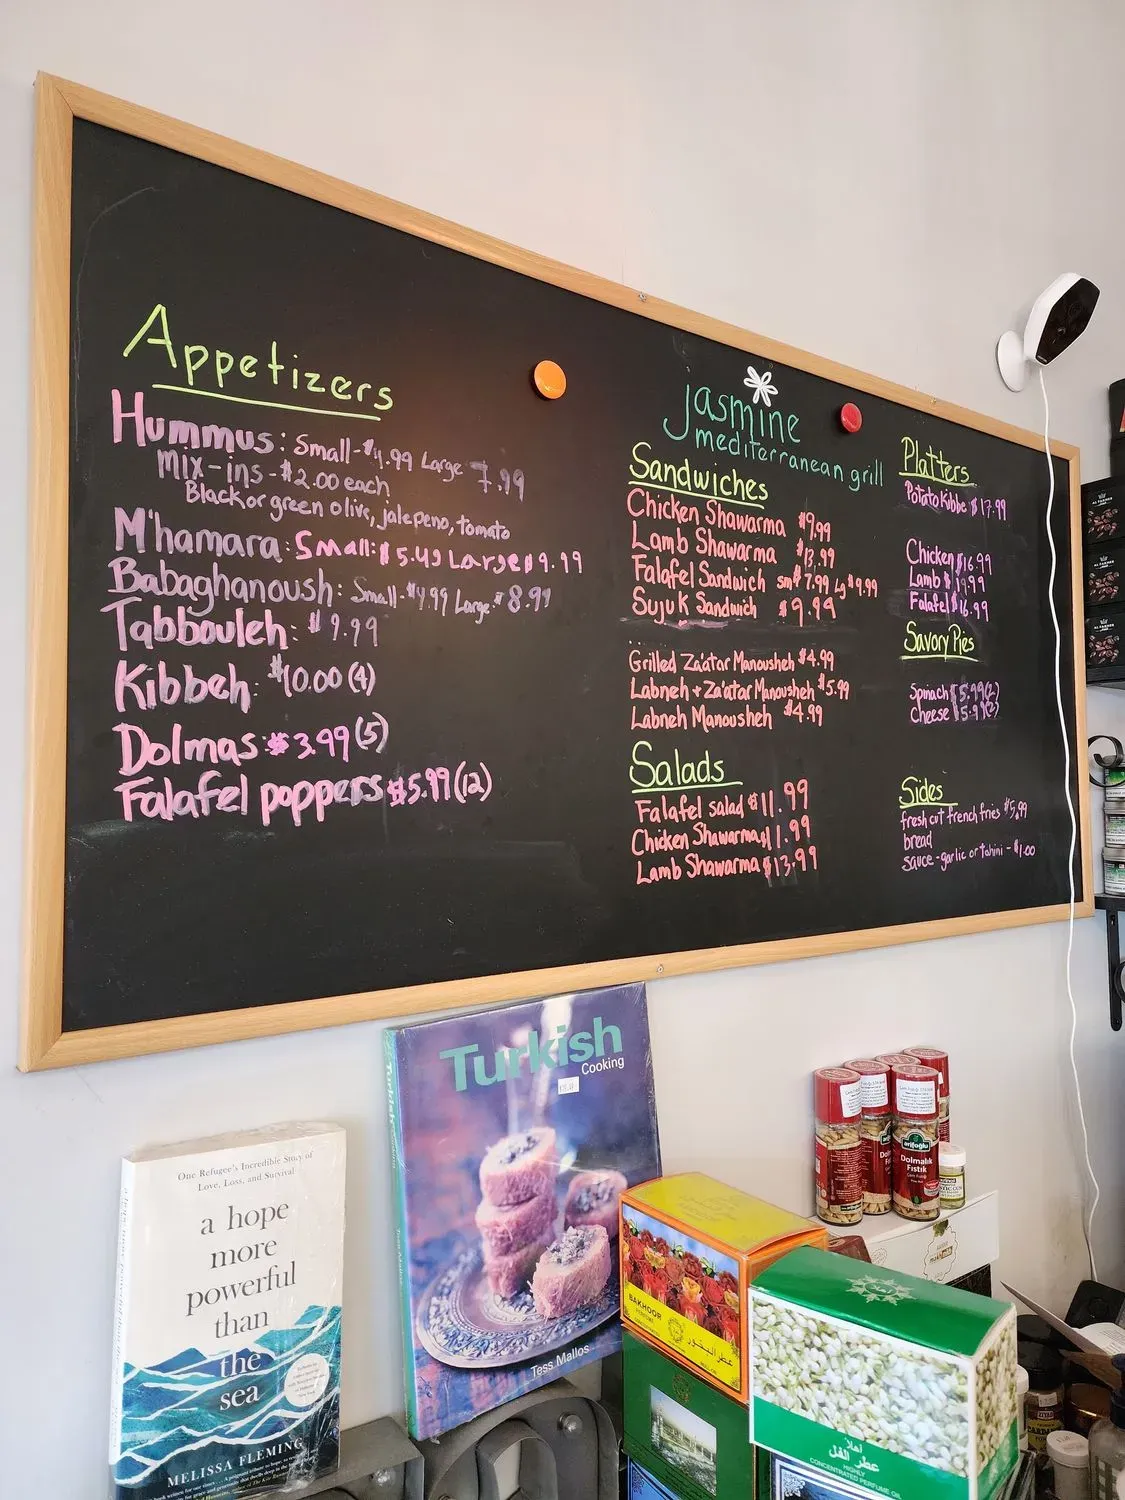 Appetizers
Hummus: Small-$4.99 Large 7.99
mix-ins-$2.00 each
Black or green olive, jalepeno, tomato
M'hamara: Small: $5.49 Large $9.99
Babaghanoush: Small-$4.99 Large-$8.99
Tabbouleh: $9.99
Kibbeh: $10.00 (4)
Dolmas: $3.99 (5)
Falafel poppers $5.99 (12)
Jasmine
mediterranean grill
Sandwiches
Chicken Shawarma $9.99
Lamb Shawarma $13.99
Falafel Sandwich sm $7.99 Lg $9.99
Sujuk Sandwich $9.99
Grilled Za'atar Manousheh $4.99
Labneh + Za'atar Manousheh $5.99
Labneh Manousheh $4.99
Salads
Falafel salad $11.99
Chicken Shawarma $11.99
Lamb Shawarma $13.99
Platters
Potato Kibbe $17.99
Chicken $16.99
Lamb $19.99
Falafel $16.99
Savory Pies
Spinach $5.99(2)
Cheese $5.99(2)
Sides
fresh cut french fries $5.99
bread
sauce-garlic or tahini-$1.00
One Refugee's Incredible Story of
Love, Loss, and Survival
a hope
more
powerful
than
the
sea
MELISSA FLEMING
Turkish
Cooking
Tess Mallos
BAKHOOR
عطر البخور
arifoğlu
Dolmalık
Fıstık
اهلا
عطر الفل
HIGHLY
CONCENTRATED PERFUME OIL